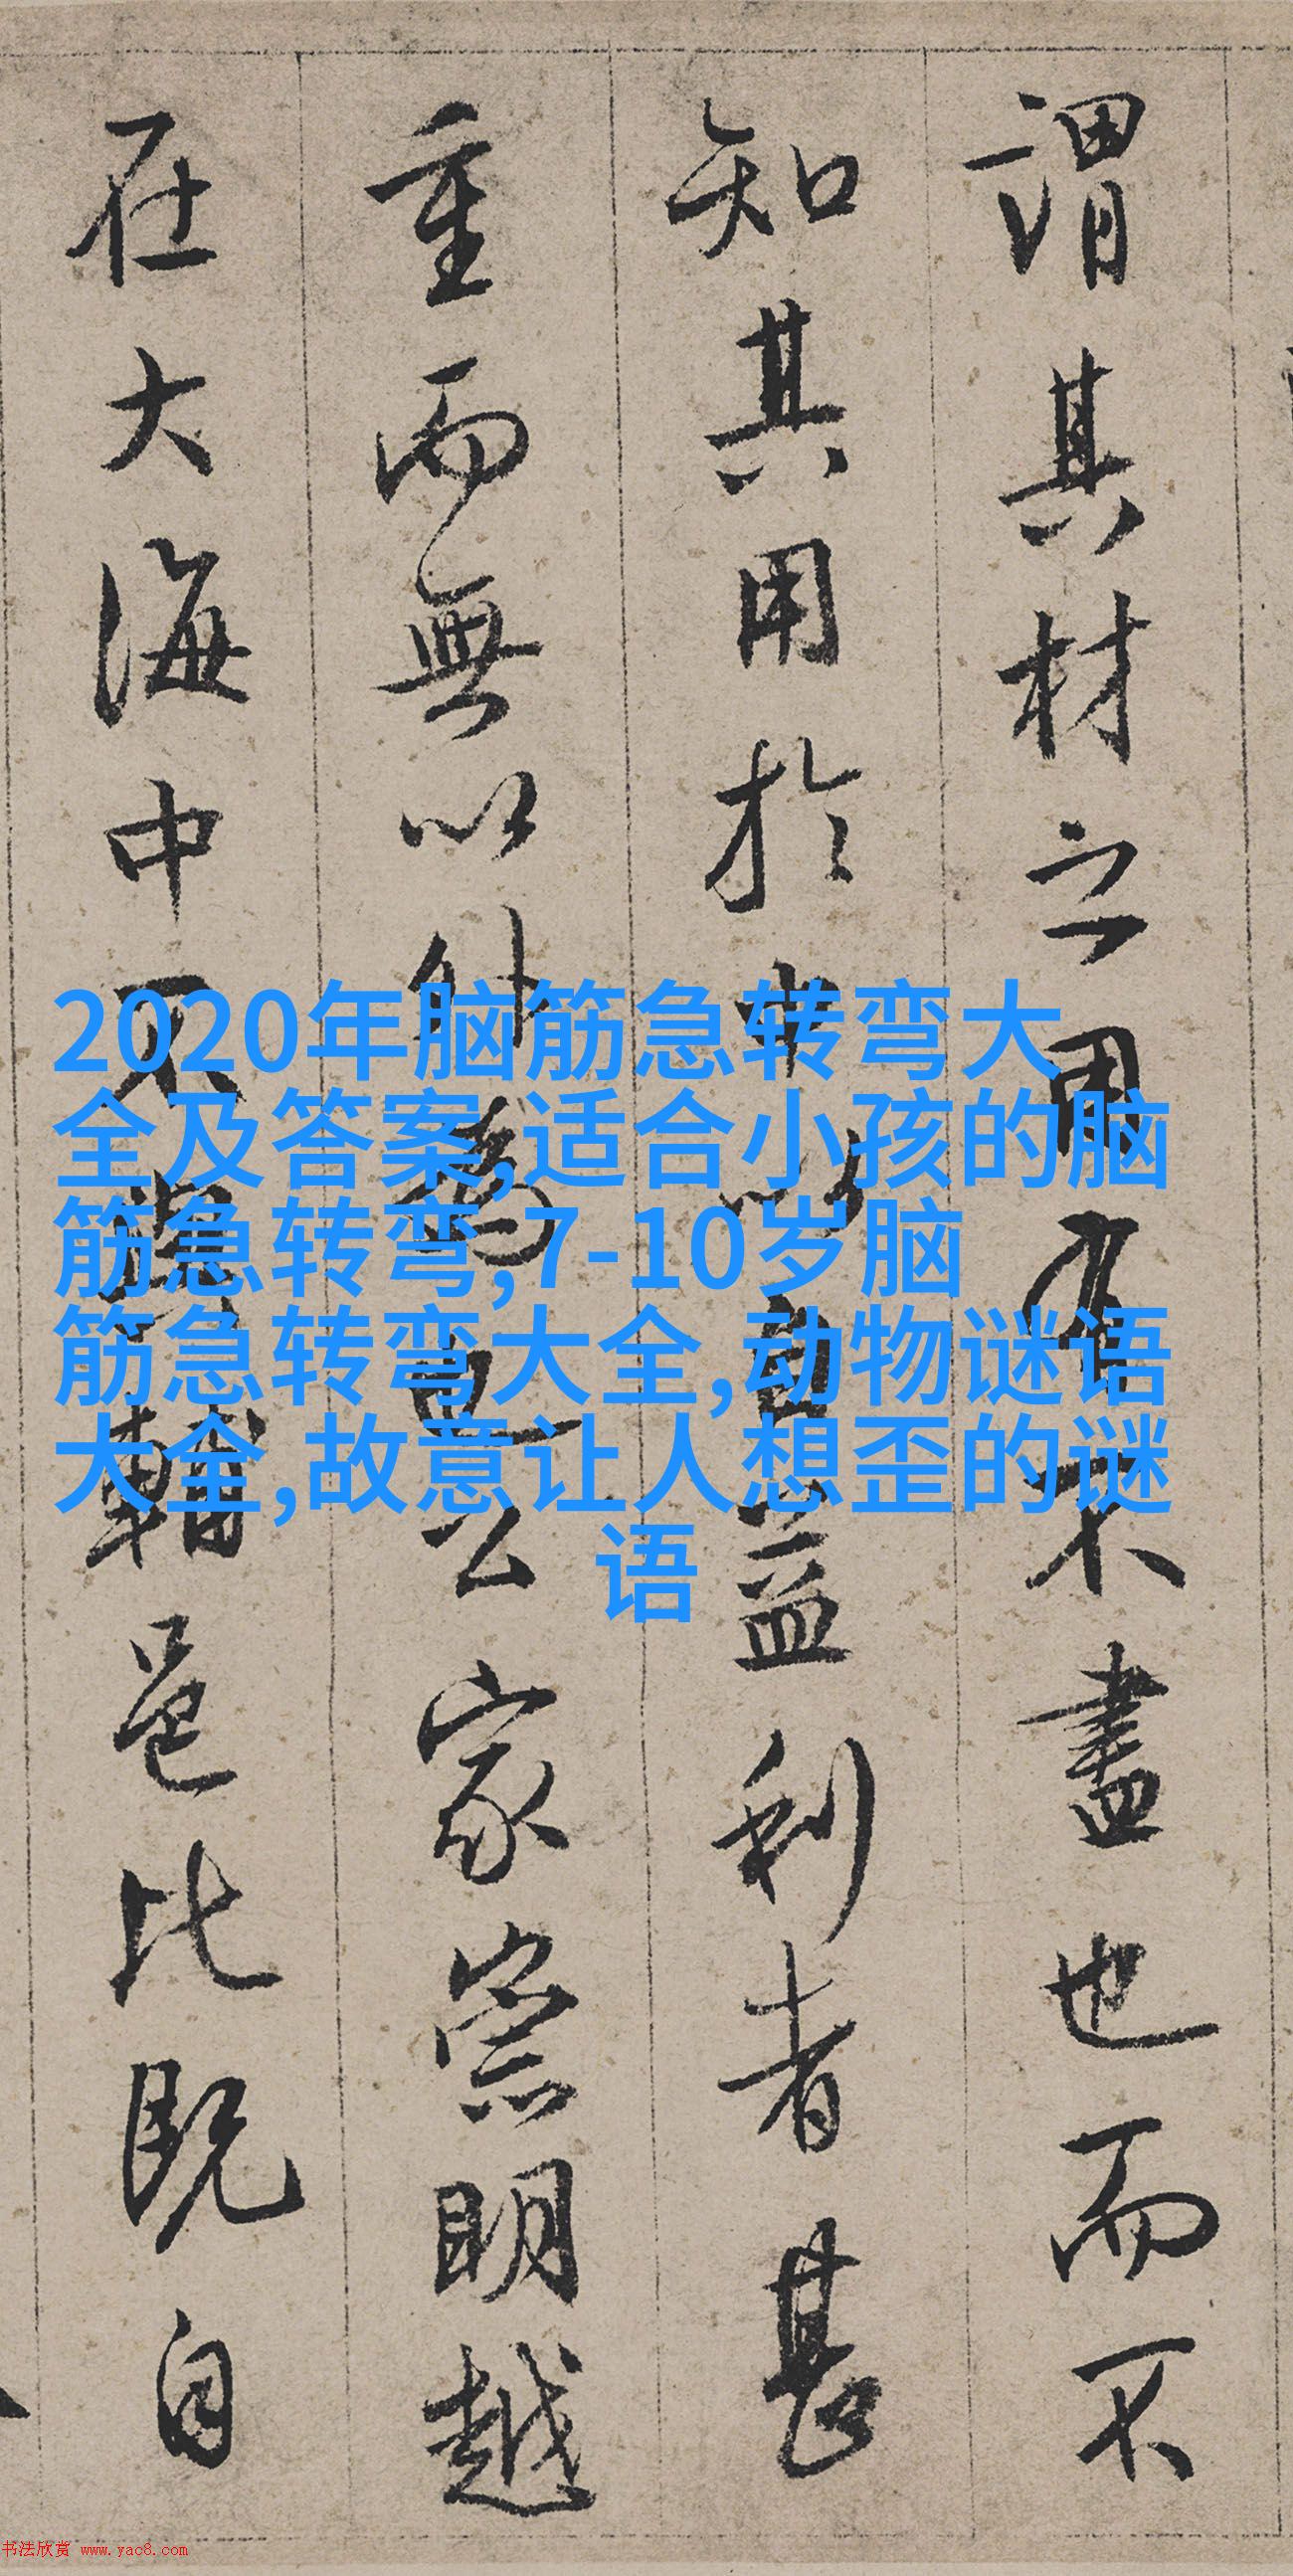 謂其材之用有不盡也而不
知其用於以自益利者甚
重而無以公家崇明越
在大海中不與輔邑比既自
2020年脑筋急转弯大
全及答案,适合小孩的脑
筋急转弯,7-10岁脑
筋急转弯大全,动物谜语
大全,故意让人想歪的谜
语
书法欣赏 www.yac8.com